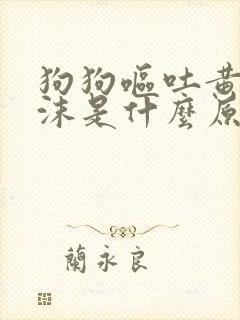 狗狗嘔吐黃
沫是什麼原
蘭永良